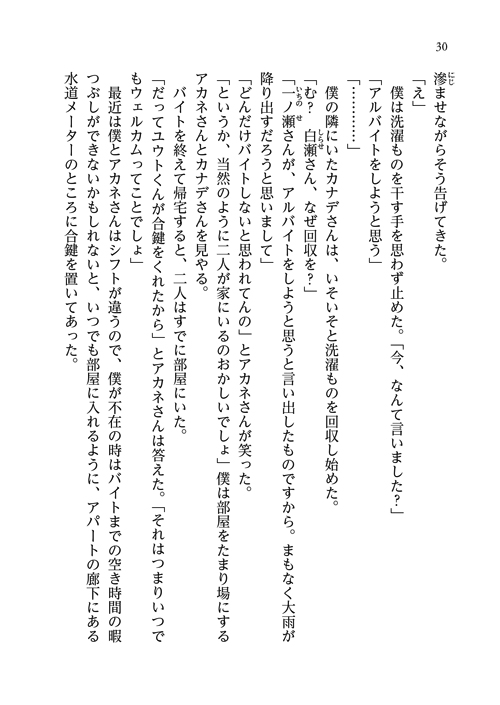 30
滲ませながらそう告げてきた。
「え」
僕は洗濯ものを干す手を思わず止めた。「今、なんて言いました？」
「アルバイトをしようと思う」
「…………」
僕の隣にいたカナデさんは、いそいそと洗濯ものを回収し始めた。
「む？　白瀬さん、なぜ回収を？」
「一ノ瀬さんが、アルバイトをしようと思うと言い出したものですから。まもなく大雨が
降り出すだろうと思いまして」
「どんだけバイトしないと思われてんの」とアカネさんが笑った。
「というか、当然のように二人が家にいるのおかしいでしょ」僕は部屋をたまり場にする
アカネさんとカナデさんを見やる。
バイトを終えて帰宅すると、二人はすでに部屋にいた。
「だってユウトくんが合鍵をくれたから」とアカネさんは答えた。「それはつまりいつで
もウェルカムってことでしょ」
最近は僕とアカネさんはシフトが違うので、僕が不在の時はバイトまでの空き時間の暇
つぶしができないかもしれないと、いつでも部屋に入れるように、アパートの廊下にある
水道メーターのところに合鍵を置いてあった。